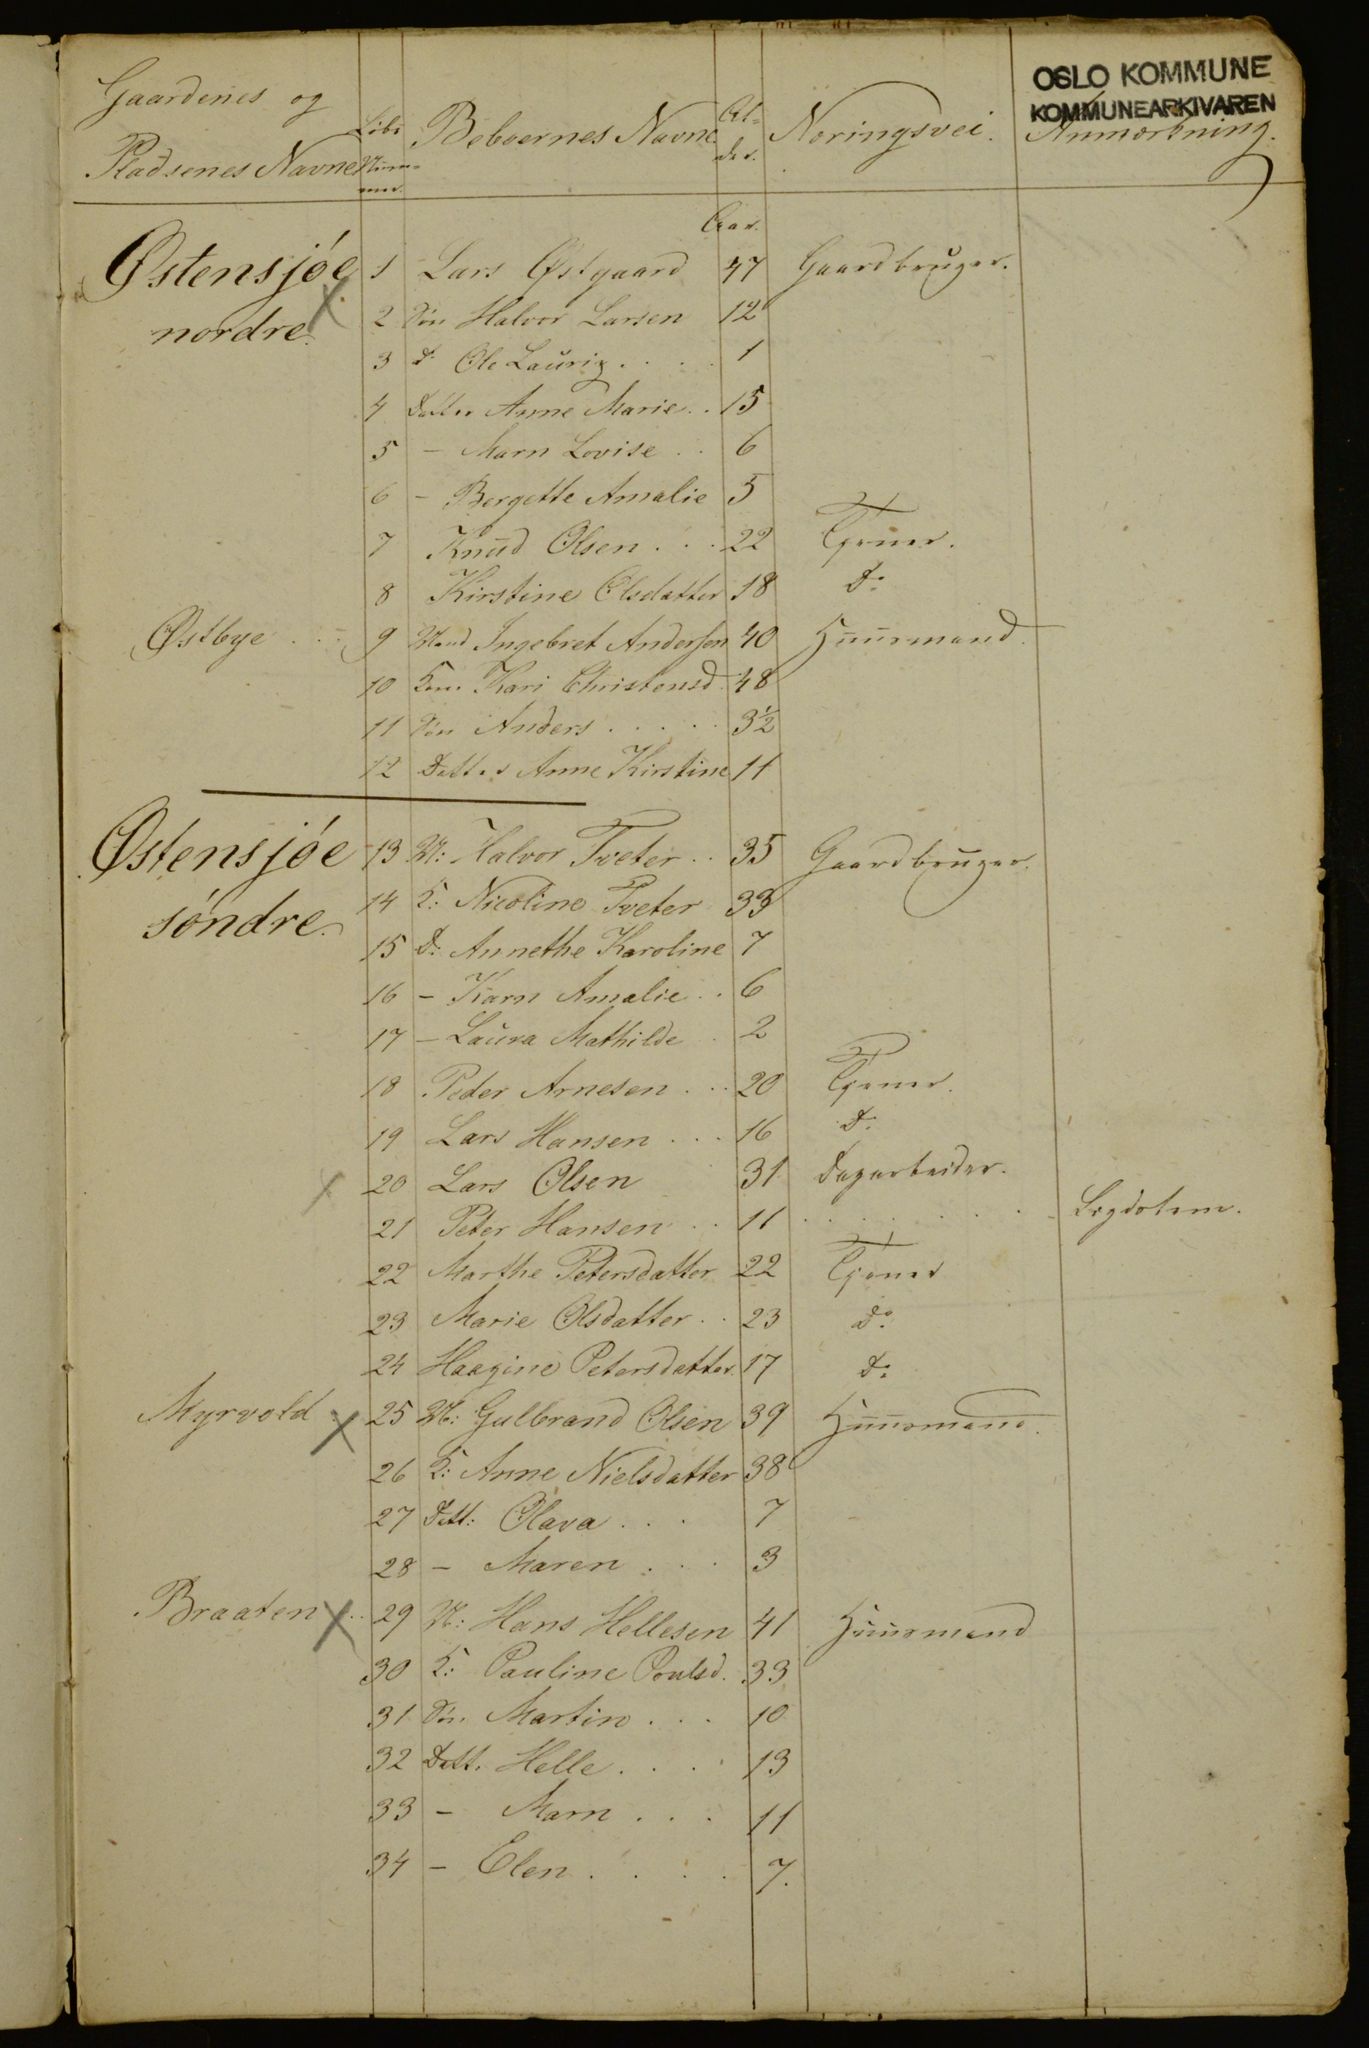 OSLO KOMMUNE
KOMMUNEARKIVAREN
Gaardenes og Pladsenes Navne | Löbe Num- mer | Beboernes Navne. | Al- der. | Næringsvei. | Anmærkning.
Aar.
Østensjøe 1 Lars Østgaard 47 Gaardbruger.
nordre. 2 Sön Halvor Larsen 12
3 do Ole Lauriz . . . . 1
4 Datter Anne Marie . . 15
5 – Marn Lovise . . 6
6 – Bergette Amalie 5
7 Knud Olsen . . . 22 Tjener.
8 Kirstine Olsdatter 18 do
Østbye . . . 9 Mand Ingebret Andersen 40 Huusmand.
10 Kone Kari Christensd. 48
11 Sön Anders . . . . . 3½
12 Datter Anne Kirstine 11
Østensjøe 13 M: Halvor Tveter . . 35 Gaardbruger.
söndre. 14 K: Nicoline Tveter 33
15 D: Annethe Karoline 7
16 – Karn Amalie . . 6
17 – Laura Mathilde . 2
18 Peder Arnesen . . . 20 Tjener.
19 Lars Hansen . . . 16 do
20 Lars Olsen 31 Dagarbeider.
21 Peter Hansen . . 11 . . . . . . . Lægdslem.
22 Marthe Petersdatter 22 Tjener
23 Marie Olsdatter . . 23 do
24 Haagine Petersdatter. 17 do
Myrvold . 25 M: Gulbrand Olsen 39 Huusmand.
26 K: Anne Nielsdatter 38
27 Datt: Olava . . . 7
28 – Maren . . . 3
Braaten . . . 29 M: Hans Hellesen 41 Huusmand
30 K: Pauline Poulsd. 33
31 Sön Martin . . . 10
32 Datt. Helle . . . . 13
33 – Marn . . . 11
34 – Elen . . . . 7.